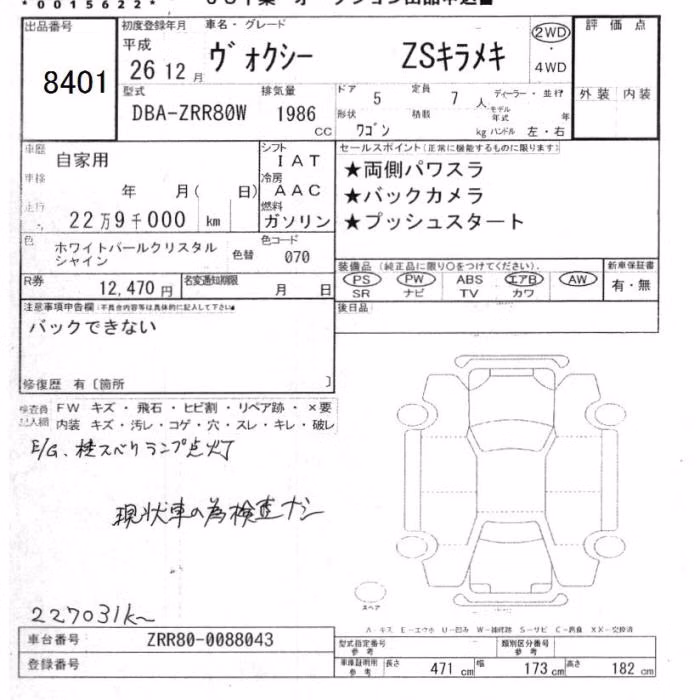 *0015622*
出品番号
8401
初度登録年月
平成
26 12 月
車名・グレード
ヴォクシー ZSキラメキ
2WD
・
4WD
評価点
外装 内装
型式
DBA-ZRR80W
排気量
1986
cc
ドア 5 定員 7 人
ディーラー・並行
形状 ワゴン 積載 kg
モデル年式 年
ハンドル 左・右
車歴
自家用
車検
年 月( 日)
走行
22万9千000 km
シフト
IAT
冷房
AAC
燃料
ガソリン
セールスポイント(正常に機能するものに限ります)
★両側パワスラ
★バックカメラ
★プッシュスタート
色
ホワイトパールクリスタル
シャイン
色替
色コード
070
R券
12,470 円
名変通知期限
月 日
装備品(純正品に限り○をつけてください)。
PS PW ABS エアB AW
SR ナビ TV カワ
新車保証書
有・無
後日品
注意事項申告欄(不具合内容等は具体的に記入して下さい)
バックできない
修復歴 有〔箇所 〕
検査員
記入欄
FW キズ・飛石・ヒビ割・リペア跡・×要
内装 キズ・汚レ・コゲ・穴・スレ・キレ・破レ
E/G、
スベリ ランプ点灯
現状車の為検査ナシ
227031km
スペア
A-キズ E-エクボ U-凹み W-補修跡 S-サビ C-腐食 XX-交換済
車台番号
ZRR80-0088043
登録番号
型式指定番号
参考
類別区分番号
参考
車庫証明用
参考
長さ 471 cm 幅 173 cm 高さ 182 cm